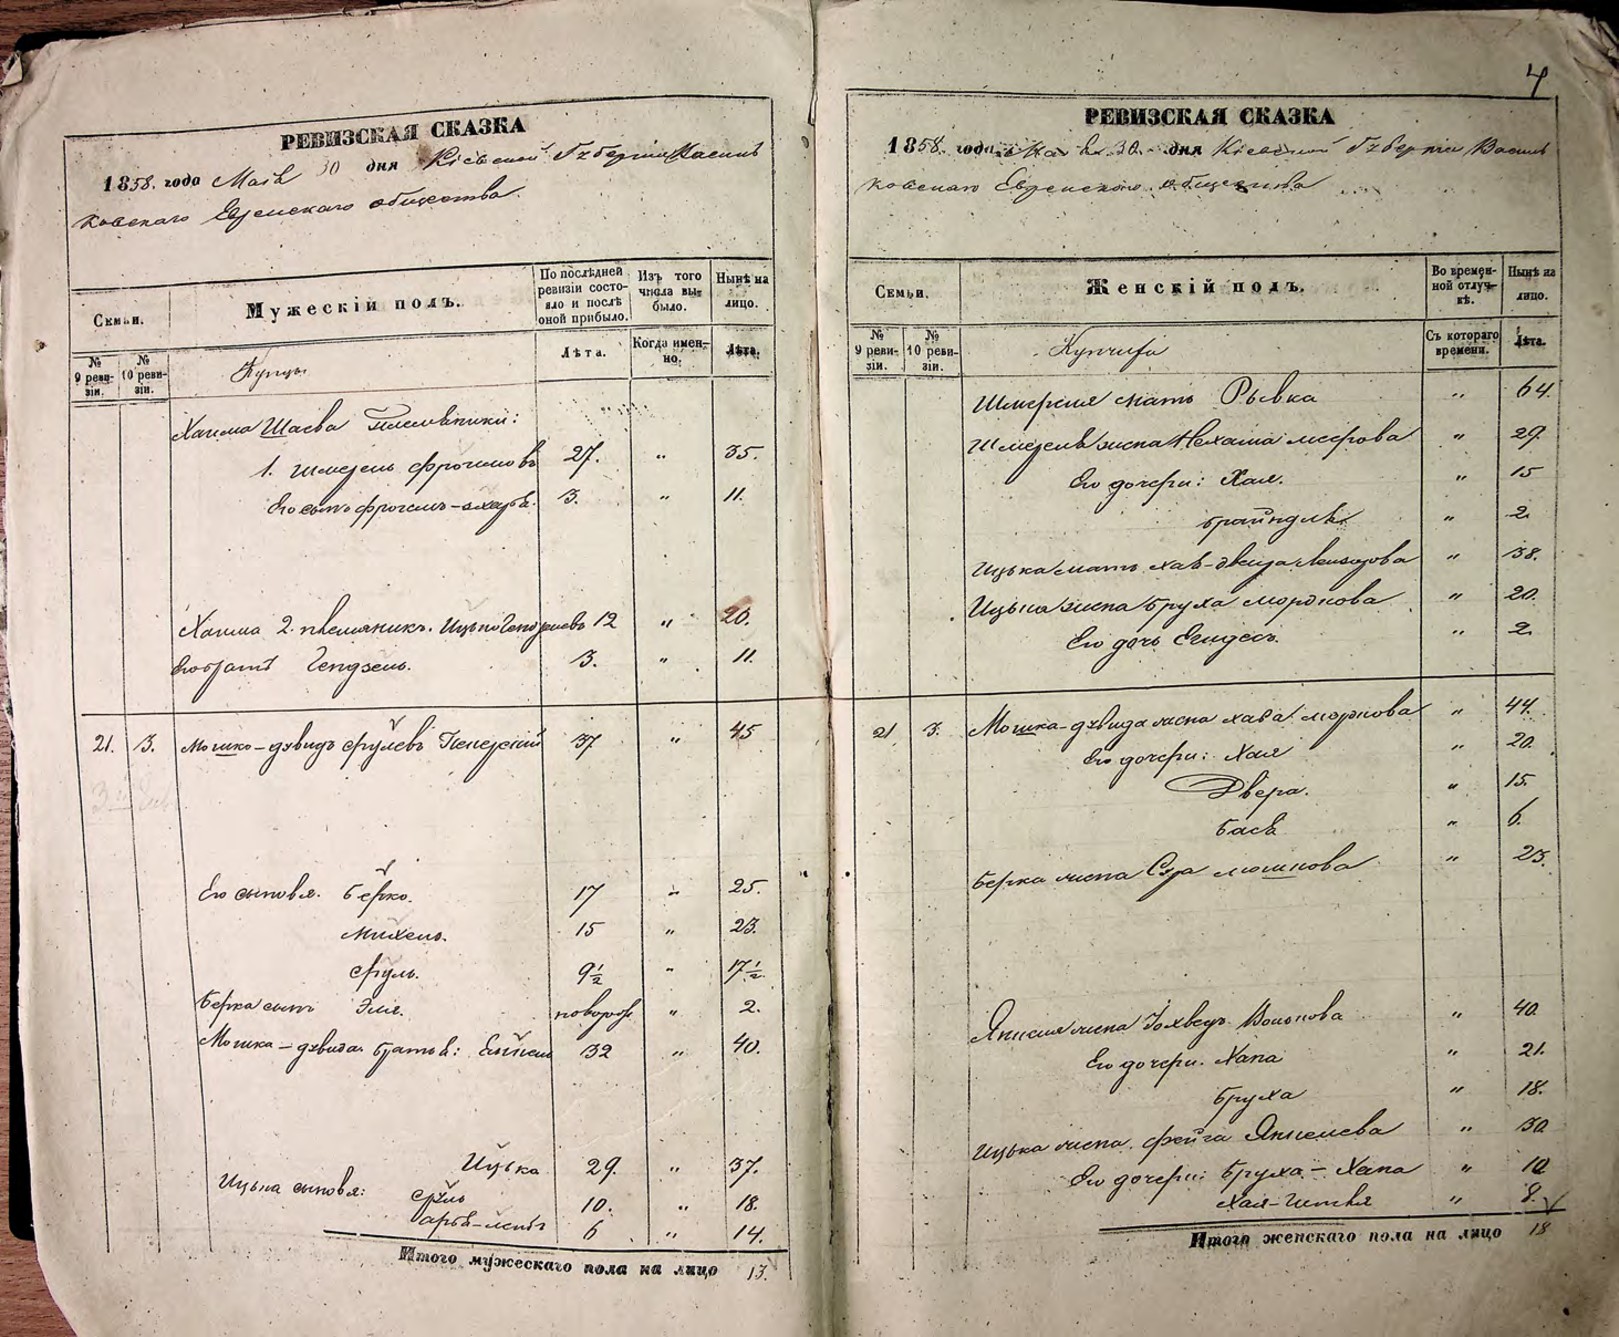 4
РЕВИЗСКАЯ СКАЗКА
1858. года Маія 30 дня Кіевской Губерніи Василь
ковскаго Еврейскаго общества.
Семьи.
Мужескій полъ.
По послѣдней ревизіи состояло и послѣ оной прибыло.
Изъ того числа выбыло.
Нынѣ на лицо.
№ 9 ревизіи.
№ 10 ревизіи.
Купцы
Лѣта.
Когда именно.
Лѣта.
Хаима Шаева племянники:
1. Шмерель Фроимовъ 27. " 35.
Его сынъ Фроимъ- 3. " 11.
Хаима 2. племяникъ. Ицько 12 " 20.
Его братъ Гендзель. 3. " 11.
21. 3. Мошко-Дувидъ Срулевъ 37 " 45
Его сыновья. Берко. 17 " 25.
Михель. 15 " 23.
Сруль. 9½ " 17½.
Берка сынъ Эля. новорож " 2.
Мошка-Дувида братья: 32 " 40.
Ицька 29. " 37.
Ицька сыновья: Сруль 10. " 18.
Арья-Лейбъ 6 " 14.
Итого мужескаго пола на лицо 13.
РЕВИЗСКАЯ СКАЗКА
1858. года Маія 30. дня Кіевской Губерніи Василь
ковскаго Еврейскаго общества
Семьи.
Женскій полъ.
Во временной отлучкѣ.
Нынѣ на лицо.
№ 9 ревизіи.
№ 10 ревизіи.
Съ котораго времени.
Лѣта.
мать Рывка " 64.
жена Нехама " 29.
Его дочери: Хая. " 15
Брайндля " 2.
Ицька мать Хая- " 38.
Ицька жена Бруха Моркова " 20.
Его дочь " 2.
21 3. Мошка-Дувида жена Хава Моркова " 44.
Его дочери: Хая " 20.
Двера. " 15.
Бася " 6.
Берка жена Сура Мошкова " 23.
жена Іохведъ Волькова " 40.
Его дочери. Хана " 21.
Бруха " 18.
Ицька жена. Фейга " 30
Его дочери: Бруха-Хана " 10
Хая-Гитля " 8.
Итого женскаго пола на лицо 18